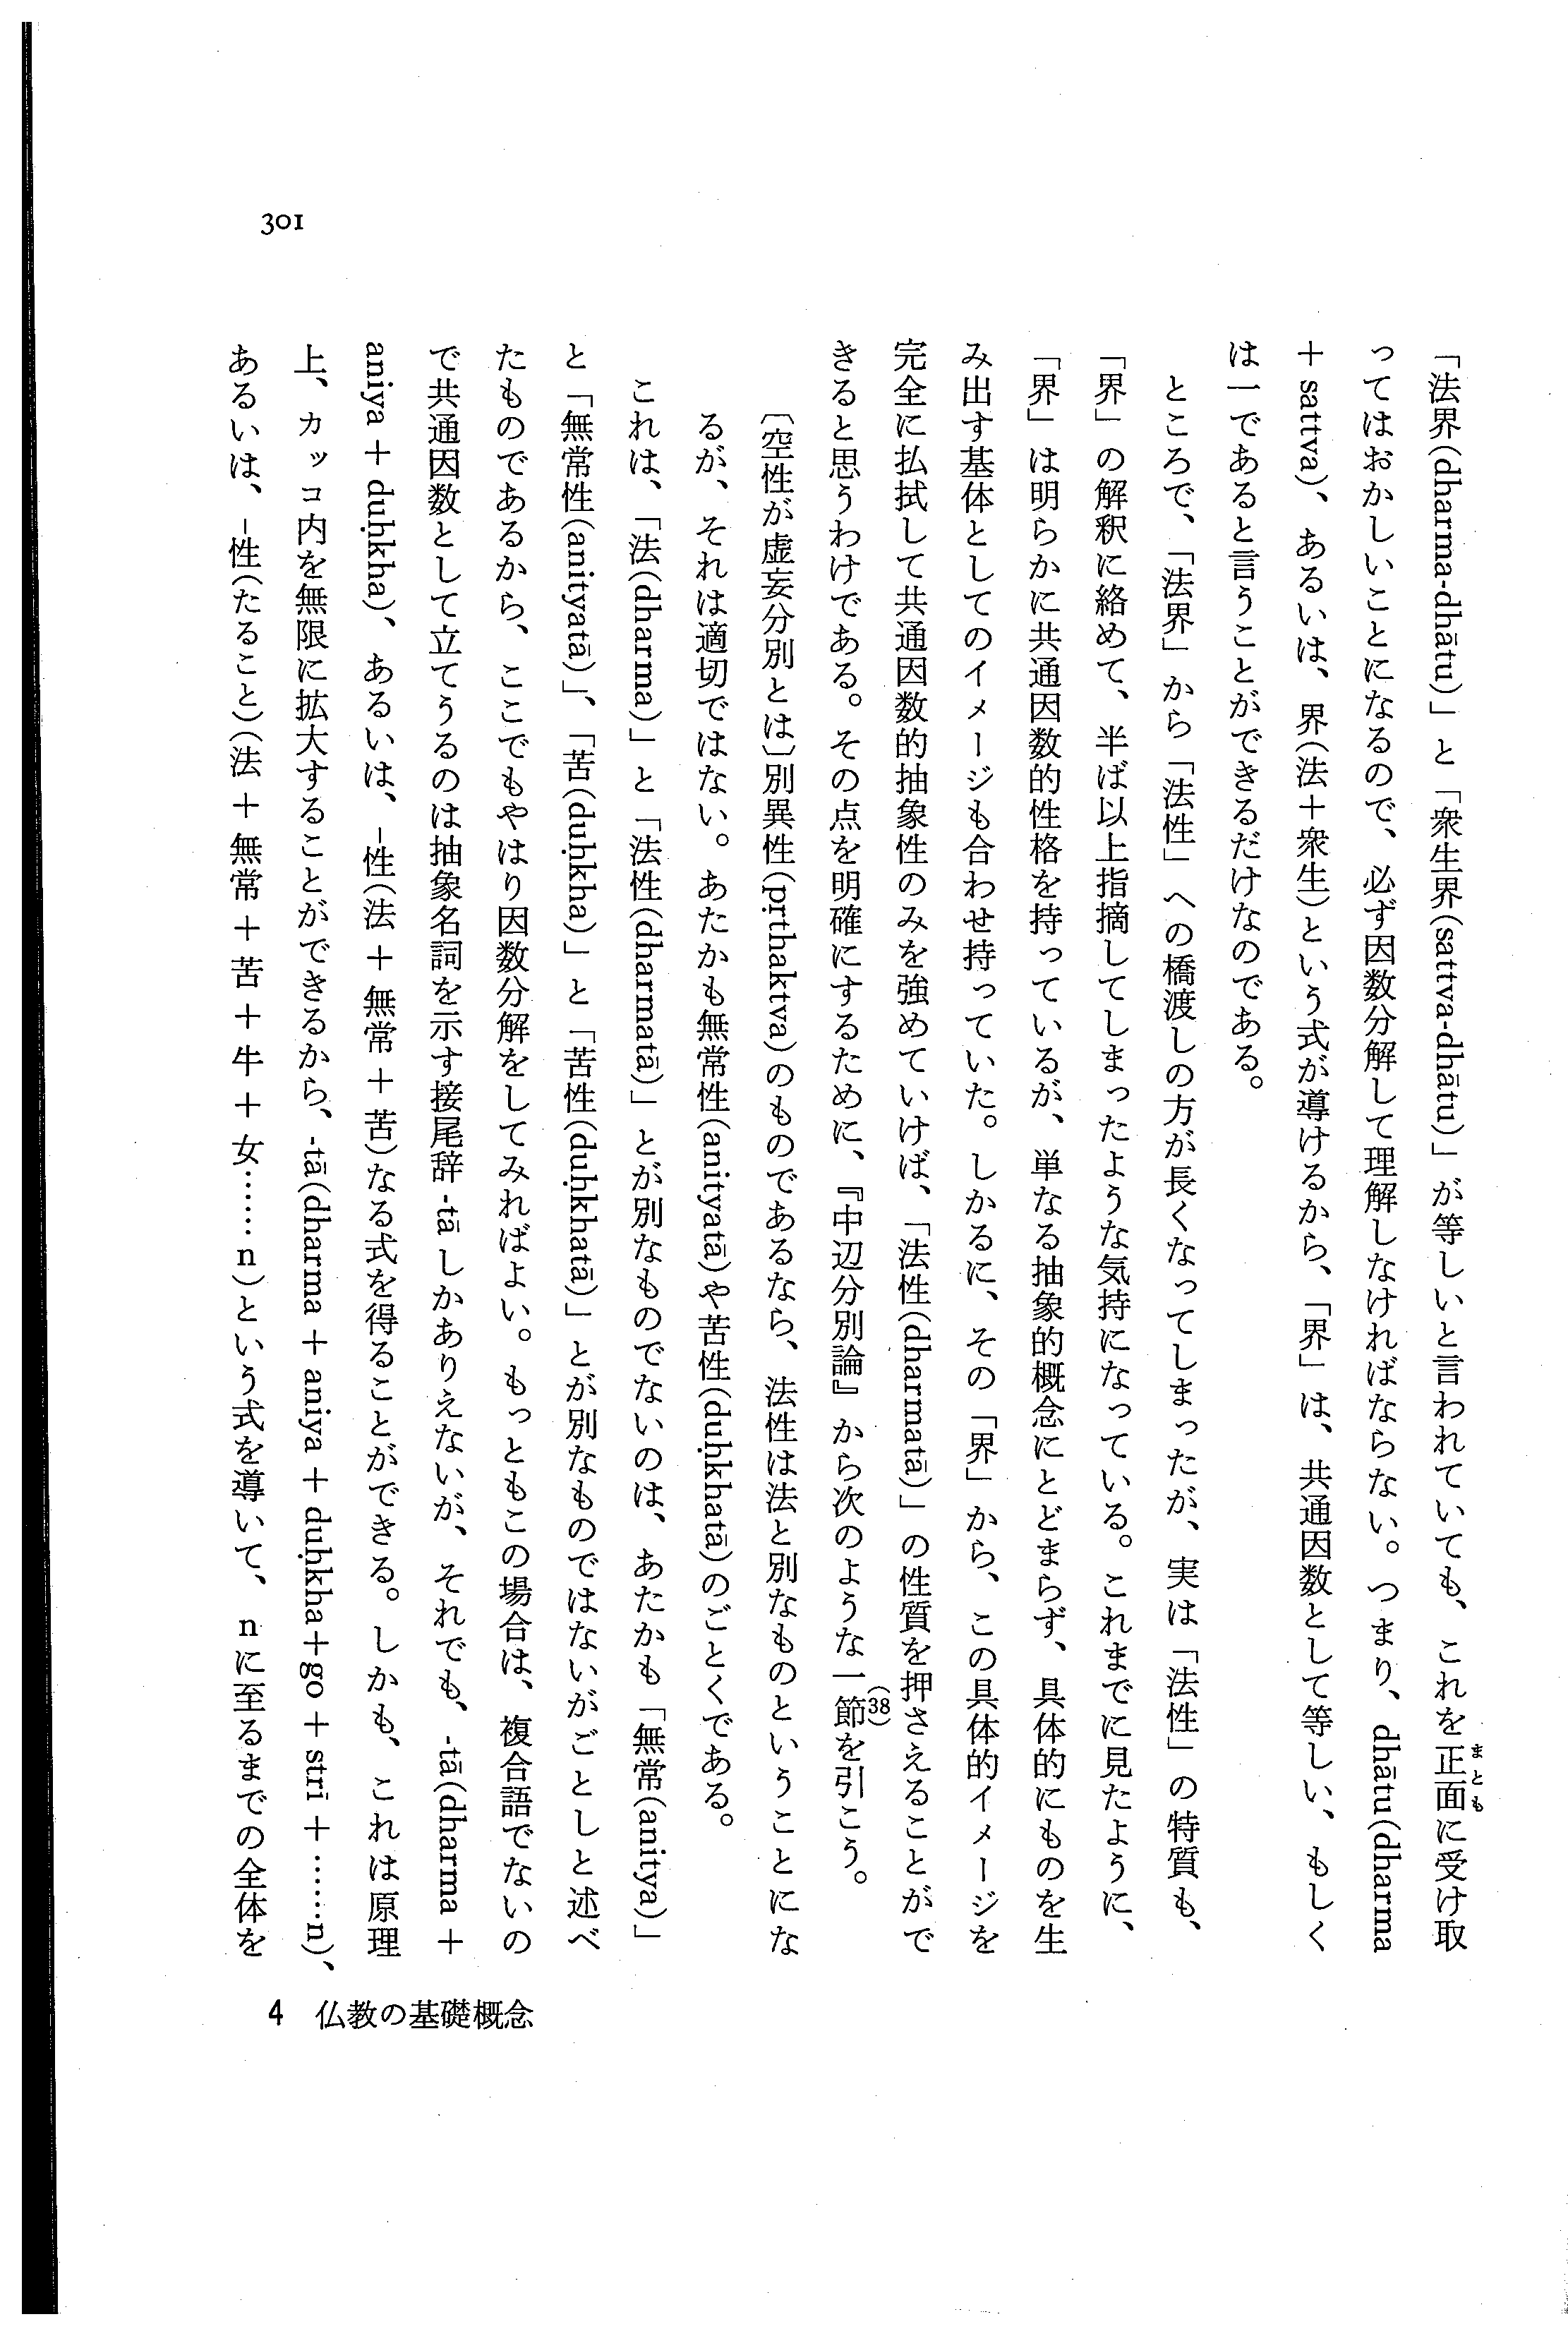 「法界(dharma-dhātu)」と「衆生界(sattva-dhātu)」が等しいと言われていても、これを正面に受け取
まとも
ってはおかしいことになるので、必ず因数分解して理解しなければならない。つまり、dhātu(dharma
＋ sattva)、あるいは、界(法＋衆生)という式が導けるから、「界」は、共通因数として等しい、もしく
は一であると言うことができるだけなのである。
ところで、「法界」から「法性」への橋渡しの方が長くなってしまったが、実は「法性」の特質も、
「界」の解釈に絡めて、半ば以上指摘してしまったような気持になっている。これまでに見たように、
「界」は明らかに共通因数的性格を持っているが、単なる抽象的概念にとどまらず、具体的にものを生
み出す基体としてのイメージも合わせ持っていた。しかるに、その「界」から、この具体的イメージを
完全に払拭して共通因数的抽象性のみを強めていけば、「法性(dharmatā)」の性質を押さえることがで
きると思うわけである。その点を明確にするために、『中辺分別論』から次のような一節を引こう。
(38)
〔空性が虚妄分別とは〕別異性(pṛthaktva)のものであるなら、法性は法と別なものということにな
るが、それは適切ではない。あたかも無常性(anityatā)や苦性(duḥkhatā)のごとくである。
これは、「法(dharma)」と「法性(dharmatā)」とが別なものでないのは、あたかも「無常(anitya)」
と「無常性(anityatā)」、「苦(duḥkha)」と「苦性(duḥkhatā)」とが別なものではないがごとしと述べ
たものであるから、ここでもやはり因数分解をしてみればよい。もっともこの場合は、複合語でないの
で共通因数として立てうるのは抽象名詞を示す接尾辞 -tā しかありえないが、それでも、-tā(dharma ＋
aniya ＋ duḥkha)、あるいは、-性(法 ＋ 無常 ＋ 苦)なる式を得ることができる。しかも、これは原理
上、カッコ内を無限に拡大することができるから、-tā(dharma ＋ aniya ＋ duḥkha＋go ＋ strī ＋ ……n)、
あるいは、-性(たること)(法 ＋ 無常 ＋ 苦 ＋ 牛 ＋ 女……n)という式を導いて、nに至るまでの全体を
4　仏教の基礎概念
301